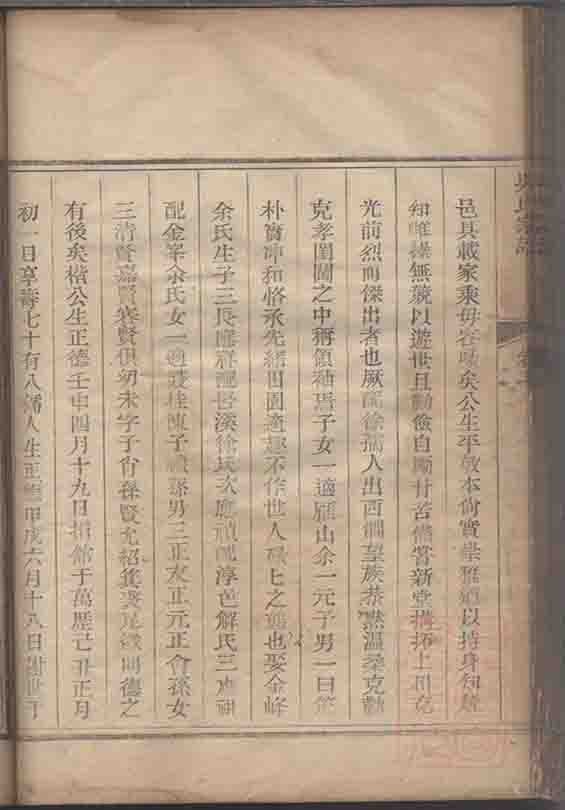 吳氏宗譜
邑具載家乘毋容喙矣公生平敦本尚實崇雅道以持身知
知雌操無競以遊世且勤儉自勵甘苦備嘗新堂構拓土田克
光前烈而傑出者也厥配徐孺人出西澗望族恭默溫柔克勤
克孝閨閫之中稱領袖焉子女一適雁山余一元子男一曰
朴實冲和恪承先緒田園適趣不作世人碌碌之態也娶金峰
余氏生子三長應祥配呂溪徐氏次應禎配淳邑解氏三應祖
配金峯余氏女一適凌桂陳子孫男三正文正元正會孫女
三清賢嘉賢寒賢俱幼未字子肖孫賢允紹箕裘足徵明德之
有後矣楷公生正德壬申四月十九日捐館于萬歷己丑正月
初一日享壽七十有八孺人生正德甲戌六月十八日謝世于